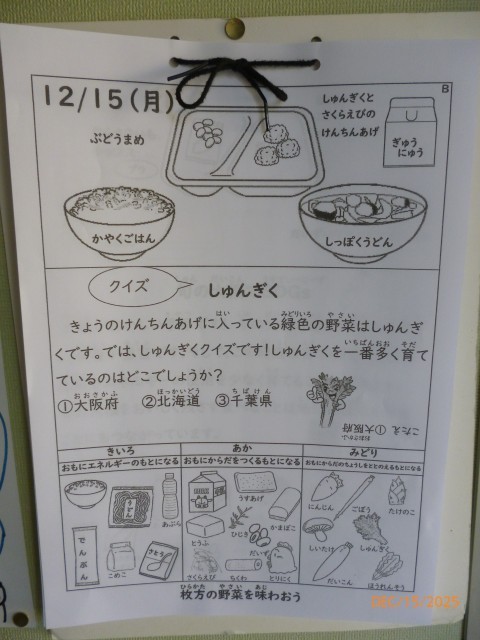 12/15(月)
B
ぶどうまめ
しゅんぎくと
さくらえびの
けんちんあげ
ぎゅう
にゅう
かやくごはん
しっぽくうどん
クイズ
しゅんぎく
きょうのけんちんあげに入っている緑色の野菜はしゅんぎ
くです。では、しゅんぎくクイズです!しゅんぎくを一番多く育て
ているのはどこでしょうか?
①大阪府 ②北海道 ③千葉県
こたえ ①大阪府
きいろ あか みどり
おもにエネルギーのもとになる おもにからだをつくるもとになる おもにからだのちょうしをととのえるもとになる
うどん
あぶら
でんぷん
こめこ
さとう
うすあげ
とうふ
ひじき
かまぼこ
だいず
さくらえび
ちくわ
とりにく
にんじん
ごぼう
たけのこ
しいたけ
しゅんぎく
だいこん
ほうれんそう
枚方の野菜を味わおう
DEC/15/2025